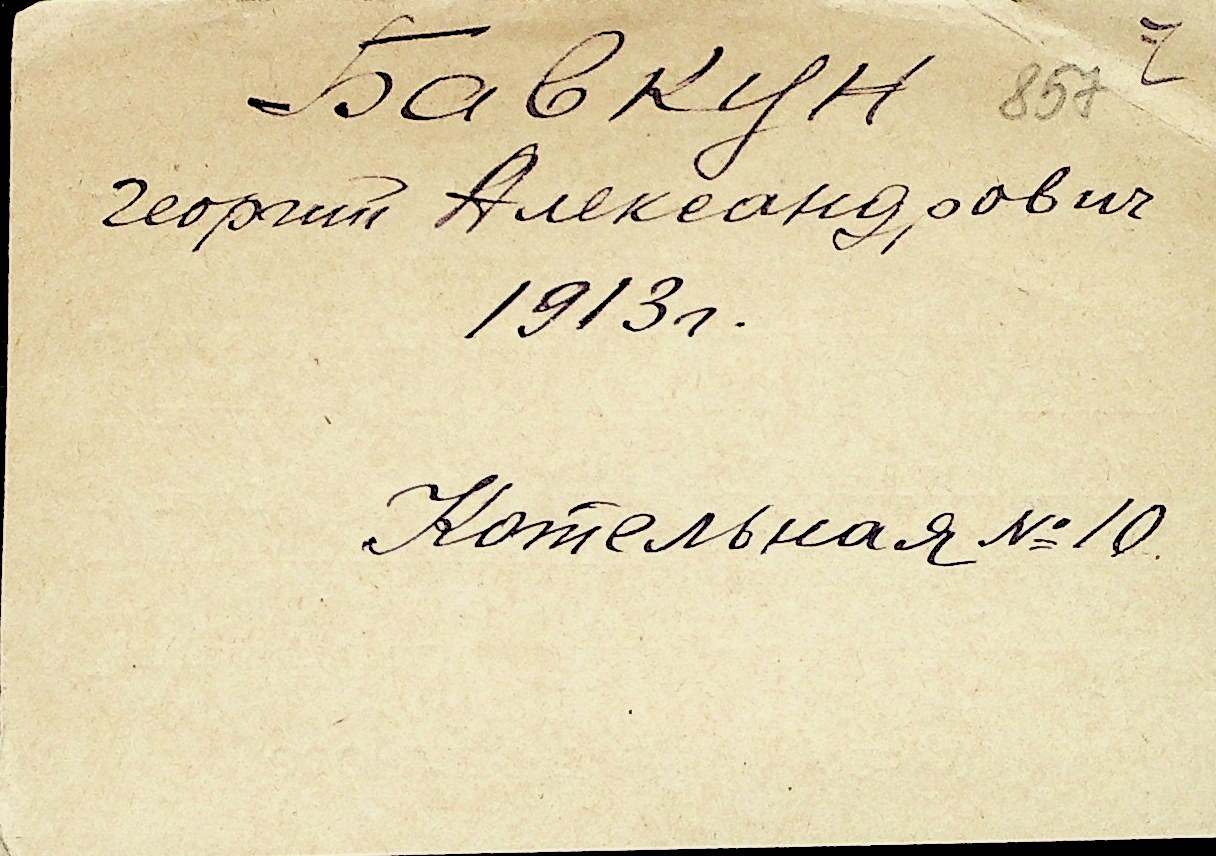 Бавкун 857
Георгий Александрович
1913г.
Котельная № 10